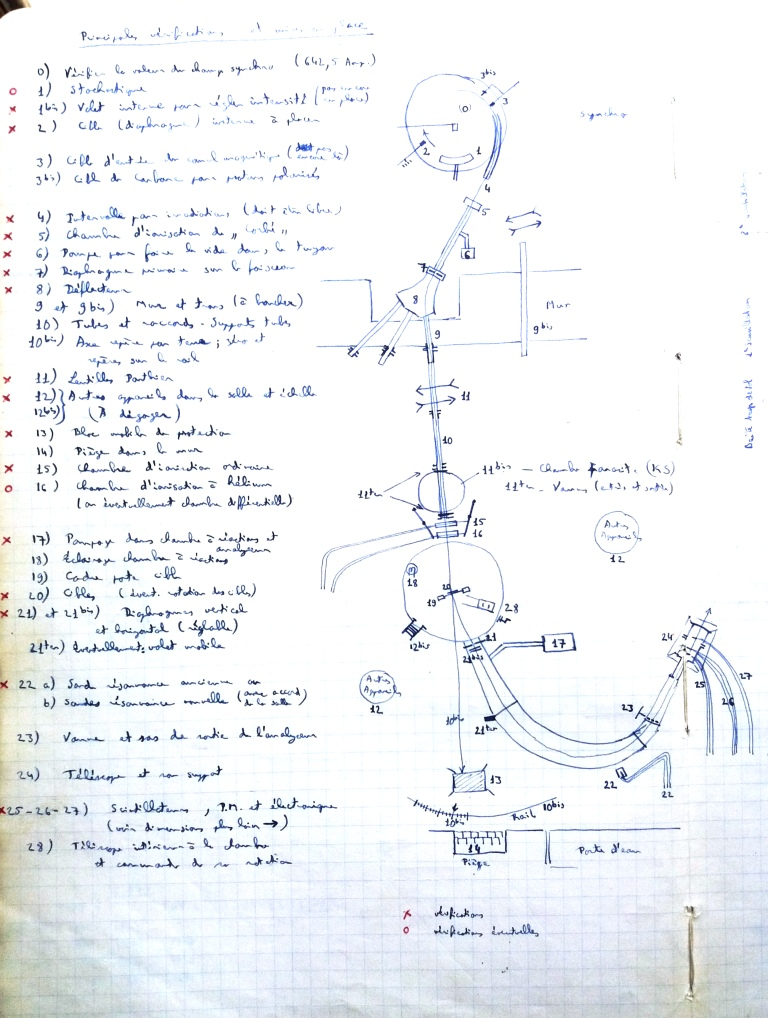 Principales vérifications et mises en place
0) Vérifier la valeur du champ synchro (642,5 Amp.)
o 1) Stochastique
x 1bis) Volet interne pour régler intensité (pas encore en place)
x 2) Cible (diaphragme) interne à placer
3) Cible d'entrée du canal magnétique (pas encore là)
3bis) Cible de Carbone pour protons polarisés
x 4) Intervalle pour irradiations (doit être libre)
x 5) Chambre d'ionisation de "Corbé"
x 6) Pompe pour faire le vide dans le tuyau
x 7) Diaphragme primaire sur le faisceau
x 8) Déflecteur
9 et 9bis) Mur et trous (à boucher)
10) Tubes et raccords - Supports tubes
10bis) Axe repéré par ; et
repères sur le rail
x 11) Lentilles Ponthier
x 12) Autres appareils dans la salle et échelle
12bis) (À dégager)
x 13) Bloc mobile de protection
14) Piège dans le mur
x 15) Chambre d'ionisation ordinaire
o 16) Chambre d'ionisation à Hélium
(ou éventuellement chambre différentielle)
x 17) Pompage dans chambre à réactions et analyseur
18) Éclairage chambre à réactions
19) Cadre porte cible
x 20) Cibles (évent. rotation des cibles)
x 21) et 21bis) Diaphragmes vertical
et horizontal (réglable)
21ter) Éventuellement: volet mobile
x 22 a) Sonde résonance ancienne ou
b) Sondes résonance nouvelle (avec accord de la salle)
23) Vanne et sas de sortie de l'analyseur
24) Télescope et son support
x 25-26-27) Scintillateurs, P.M. et électronique
(voir dimensions plus loin →)
28) Télescope intérieur à la chambre
et commande de sa rotation
Synchro
3bis
3
0
2
1
4
5
6
7
8
Mur
9bis
9
11
10
11bis - Chambre (KS)
11ter - Vannes (entrée et sortie)
11ter
15
16
Autres
Appareils
12
18
20
19
28
12bis
21
21bis
17
24
27
25
26
Autres
Appareils
12
10bis
21ter
23
13
22
22
10bis
Rail 10bis
14
Piège
Porte d'eau
x vérifications
o vérifications éventuelles